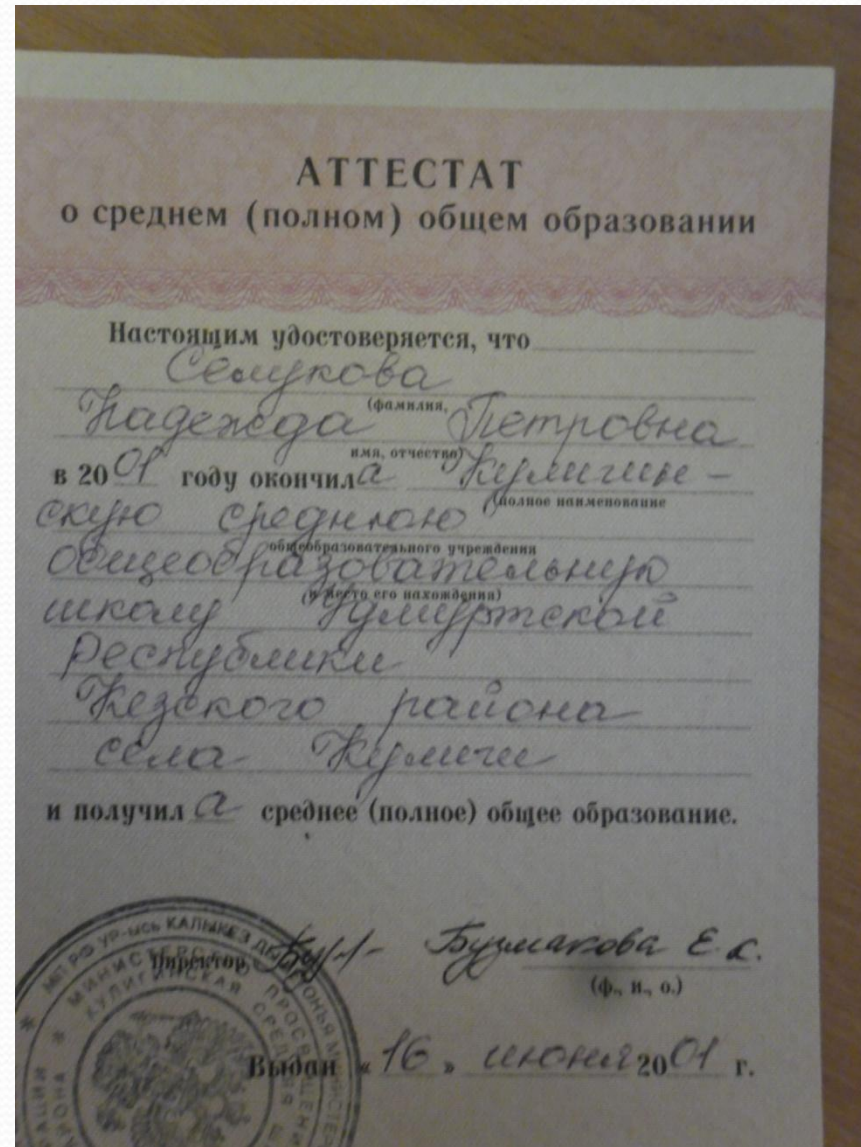 АТТЕСТАТ
о среднем (полном) общем образовании
Настоящим удостоверяется, что
Селукова
(фамилия,
Надежда Петровна
имя, отчество)
в 2001 году окончила Кулигин-
(полное наименование
скую среднюю
общеобразовательного учреждения
общеобразовательную
и место его нахождения)
школу Удмуртской
Республики
Кезского района
села Кулиги
и получила среднее (полное) общее образование.
Директор Бузмакова Е.С.
(ф., и., о.)
Выдан «16» июня 2001 г.
МИНИСТЕРСТВО ПРОСВЕЩЕНИ
КУЛИГИНСКАЯ СРЕДНЯЯ